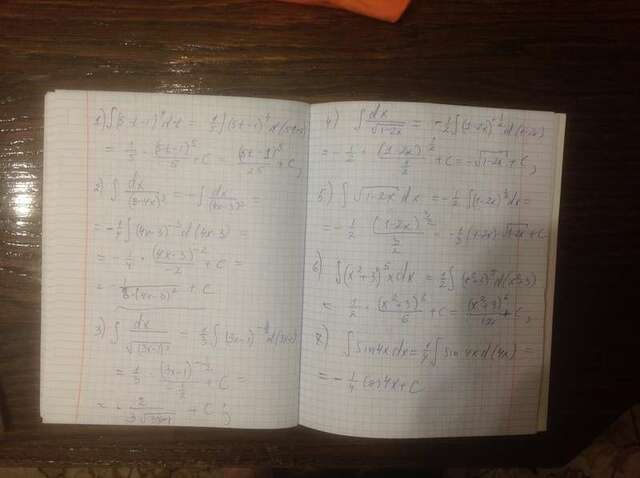 1) ∫(5t-1)⁴dt = 1/5 ∫(5t-1)⁴ d(5t-1)
= 1/5 · (5t-1)⁵/5 + C = (5t-1)⁵/25 + C;
2) ∫ dx/(3-4x)² = ∫ dx/(4x-3)² =
= -1/4 ∫(4x-3)⁻³ d(4x-3) =
= -1/4 · (4x-3)⁻²/-2 + C =
= 1/8·(4x-3)² + C
3) ∫ dx/√(3x-1)³ = 1/3 ∫(3x-1) d(3x-1)
= 1/3 · (3x-1)⁻¹/² + C =
= - 2/3√3x-1 + C;
4) ∫ dx/√1-2x = -1/2 ∫(1-2x) d(1-2x)
= -1/2 · (1-2x)^1/2 / 1/2 + C = -√1-2x + C,
5) ∫ √1-2x dx = -1/2 ∫(1-2x) dx =
= -1/2 (1-2x)^3/2 / 3/2 = -1/3 (1-2x)·√1-2x + C
6) ∫(x²+3)⁵ x dx = 1/2 ∫(x²+3)⁵ d(x²+3)
= 1/2 · (x²+3)⁶/6 + C = (x²+3)⁶/12 + C,
7) ∫ sin4x dx = 1/4 ∫ sin 4x d(4x) =
= -1/4 cos4x + C